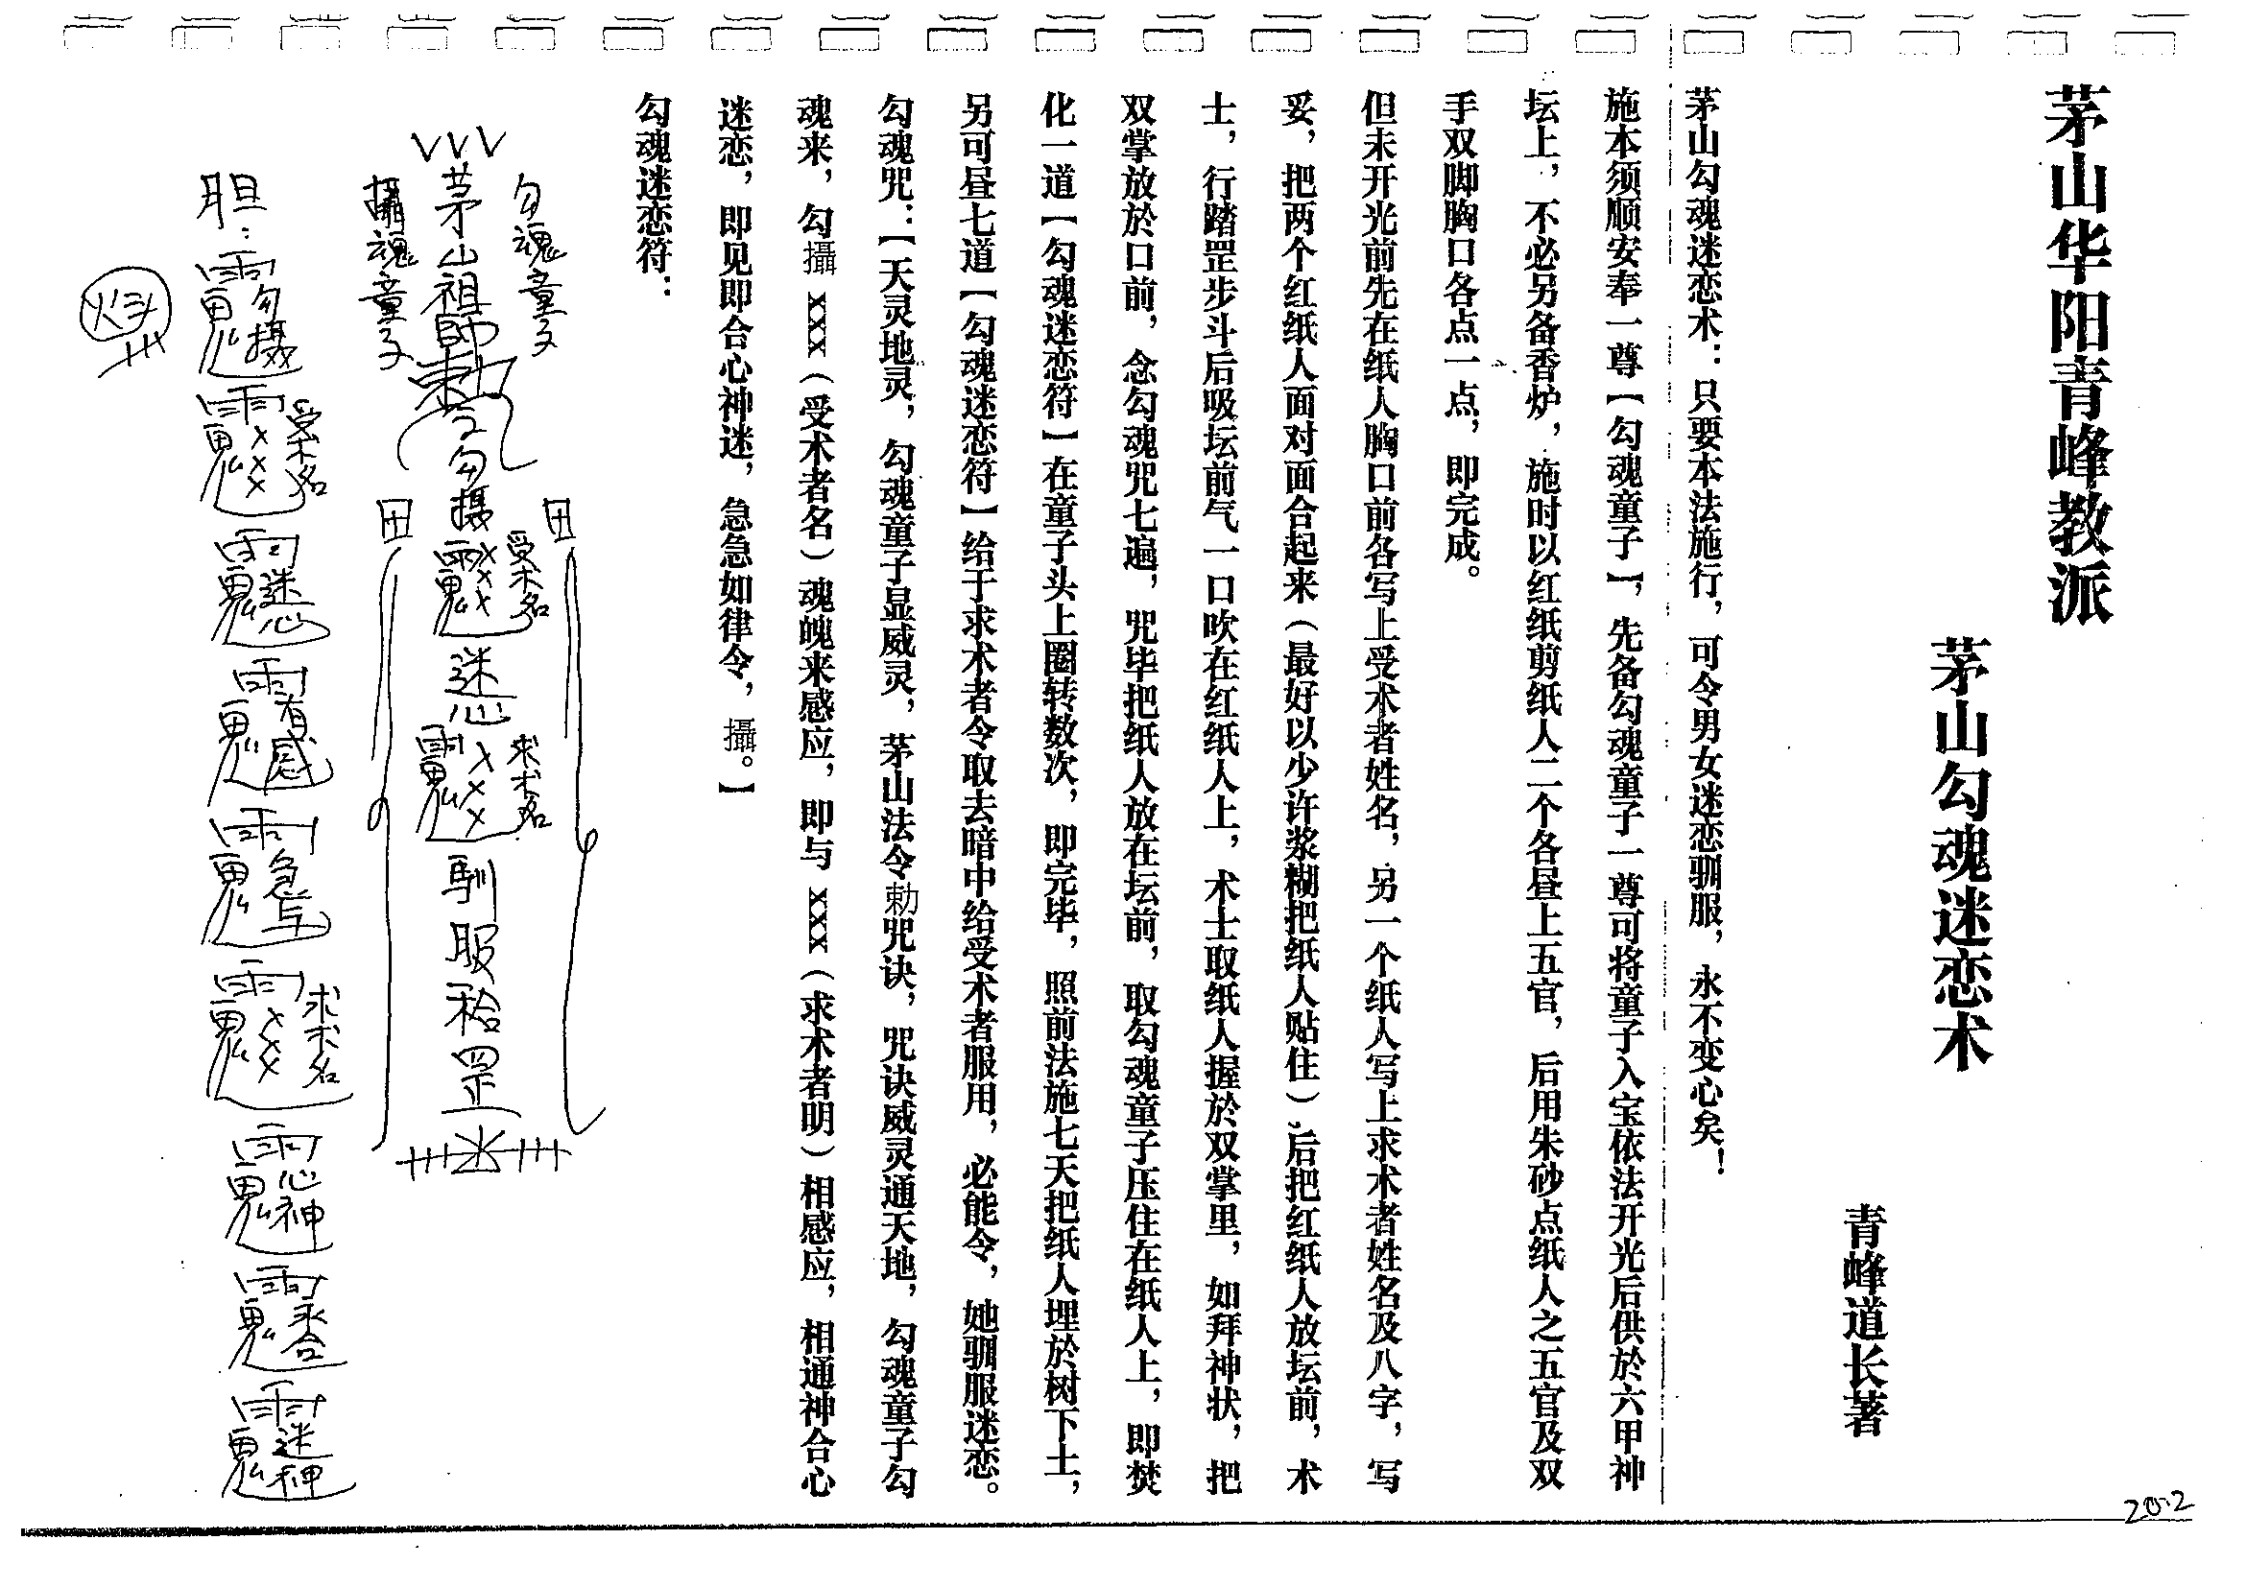 茅山华阳青峰教派
茅山勾魂迷恋术
青蜂道长著
茅山勾魂迷恋术：只要本法施行，可令男女迷恋驯服，永不变心矣！
施本须顺安奉一尊【勾魂童子】，先备勾魂童子一尊可将童子入宝依法开光后供於六甲神
坛上，不必另备香炉，施时以红纸剪纸人二个各昼上五官，后用朱砂点纸人之五官及双
手双脚胸口各点一点，即完成。
但未开光前先在纸人胸口前各写上受术者姓名，另一个纸人写上求术者姓名及八字，写
妥，把两个红纸人面对面合起来（最好以少许浆糊把纸人贴住）、后把红纸人放坛前，术
士，行踏罡步斗后吸坛前气一口吹在红纸人上，术士取纸人握於双掌里，如拜神状，把
双掌放於口前，念勾魂咒七遍，咒毕把纸人放在坛前，取勾魂童子压住在纸人上，即焚
化一道【勾魂迷恋符】在童子头上圈转数次，即完毕，照前法施七天把纸人埋於树下土，
另可昼七道【勾魂迷恋符】给于求术者令取去暗中给受术者服用，必能令，她驯服迷恋。
勾魂咒：【天灵地灵，勾魂童子显威灵，茅山法令勅咒诀，咒诀威灵通天地，勾魂童子勾
魂来，勾攝×××（受术者名）魂魄来感应，即与×××（求术者明）相感应，相通神合心
迷恋，即见即合心神迷，急急如律令，攝。】
勾魂迷恋符：
勾魂童子
茅山祖師勅令勾摄
×××受术名
迷恋
×××求术名
馴服
罡
攝魂童子
胆：
勾摄
×××受术名
迷恋
有感
急与
×××求术名
心神
来合
迷神
20.2